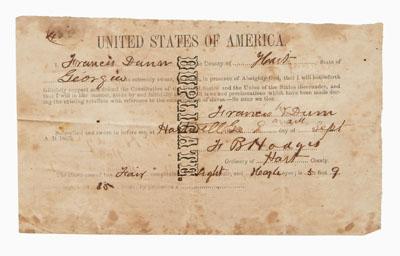 UNITED STATES OF AMERICA.
I, Francis Dunn of the County of Hart State of
Georgia do solemnly swear, in presence of Almighty God, that I will henceforth
faithfully support and defend the Constitution of the United States and the Union of the States thereunder, and
that I will in like manner, abide by and faithfully support all laws and proclamations which have been made during
the existing rebellion with reference to the emancipation of slaves—So help me God.
Francis Dunn
Subscribed and sworn to before me at
Hartwell Ga day of Sept
A. D. 1865.
F B Hodges
Ordinary of Hart County.
The above named has Fair complexion, Light hair, and Hazle eyes; is 5 feet 9
DUPLICATE.